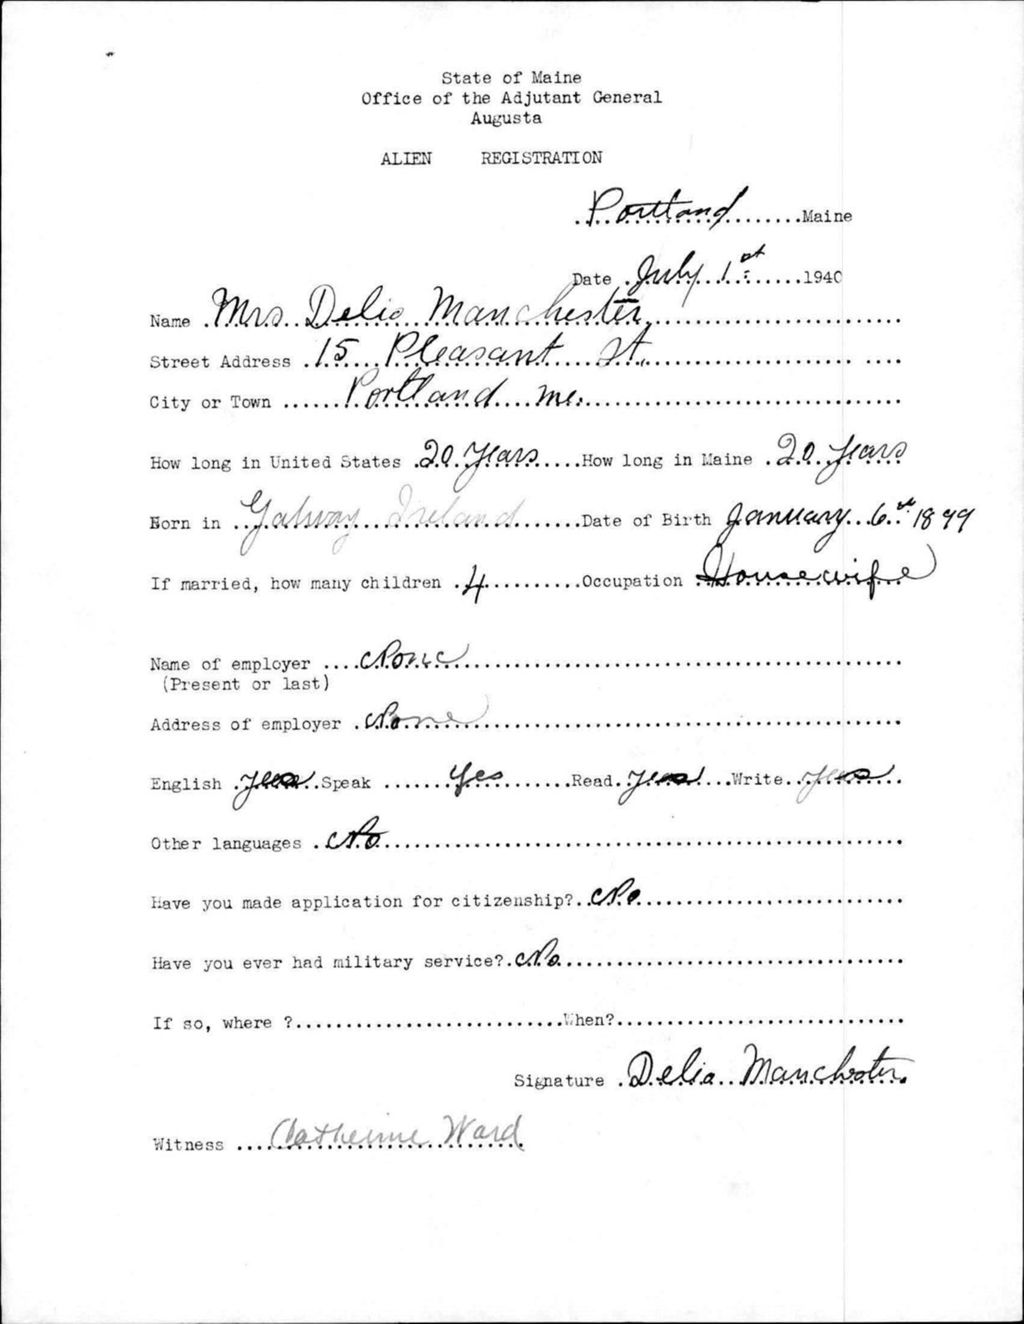 State of Maine
Office of the Adjutant General
Augusta
ALIEN REGISTRATION
Portland Maine
Date July 1st 1940
Name Mrs. Delia Manchester
Street Address 15 Pleasant St.
City or Town Portland Me.
How long in United States 20 years How long in Maine 20 years
Born in Galway Ireland Date of Birth January 6st 1899
If married, how many children 4 Occupation Housewife
Name of employer None
(Present or last)
Address of employer None
English yes Speak Yes Read yes Write yes
Other languages No
Have you made application for citizenship? No
Have you ever had military service? No
If so, where ? When?
Signature Delia Manchester
Witness Catherine Ward